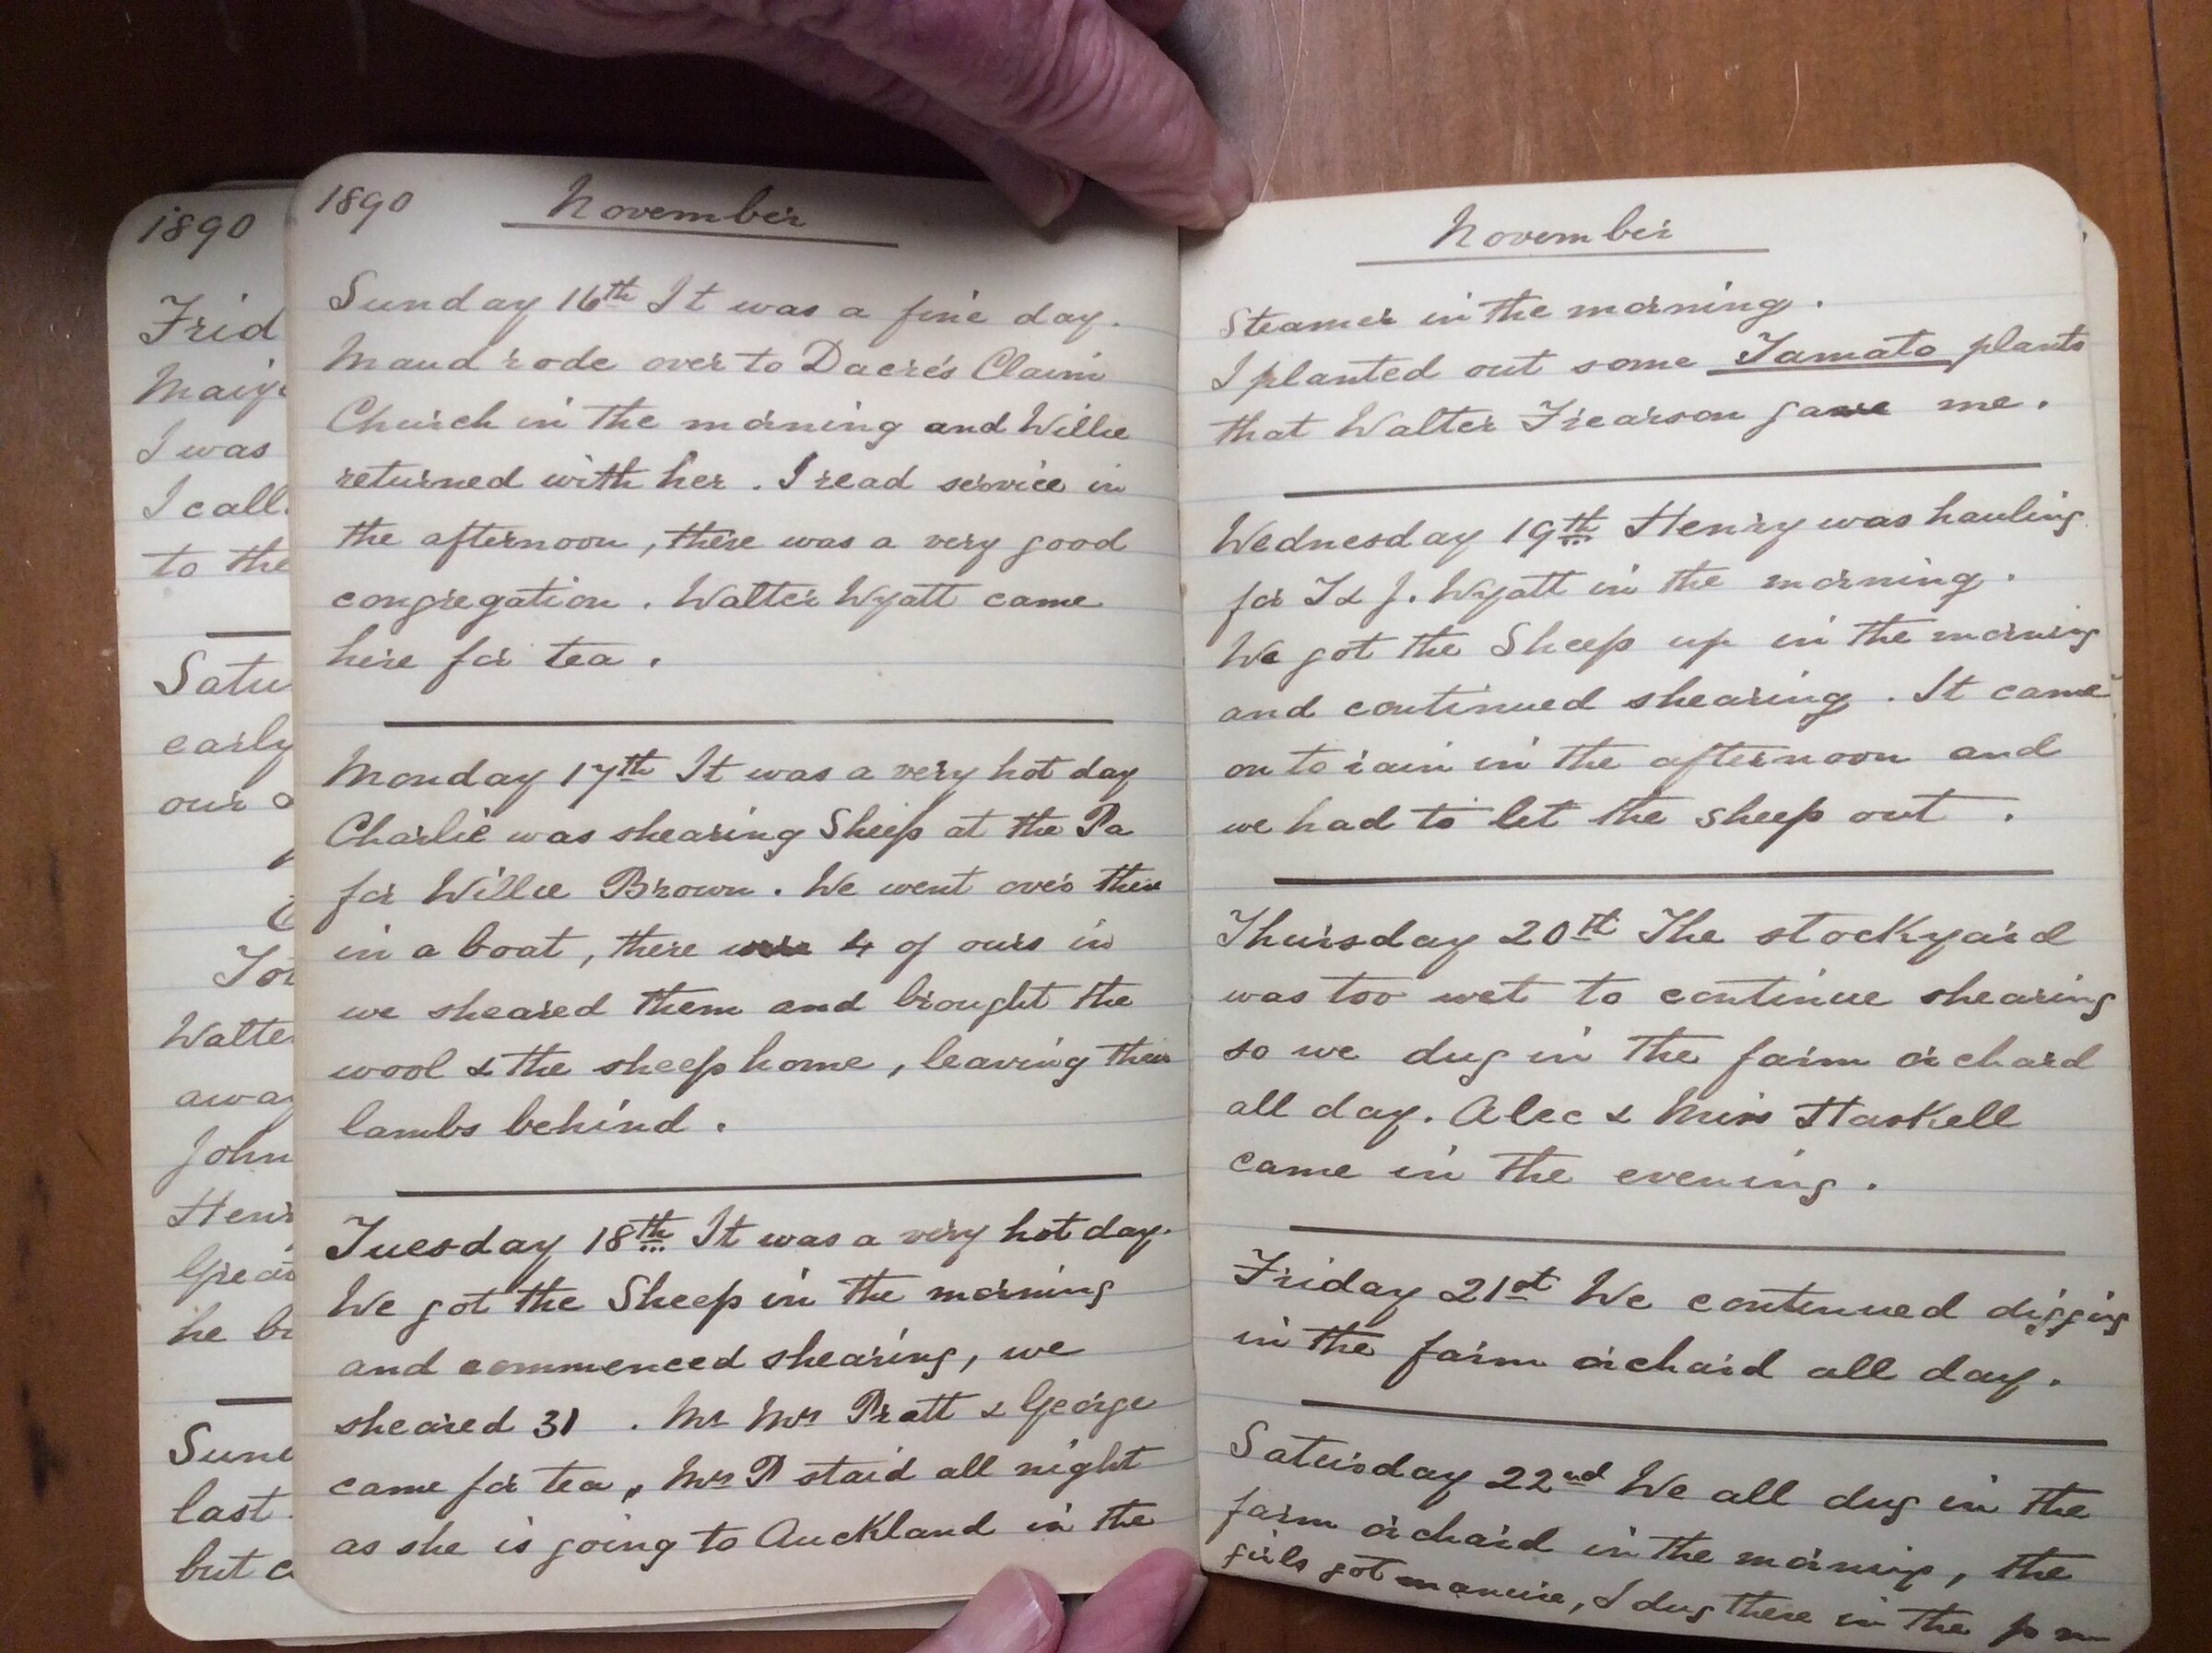 1890
Frid
I was
I call
to the
Satu
early
our
Walte
away
John
Henr
he
Sun
last
but
1890 November
Sunday 16th It was a fine day.
Maud rode over to Dacre's Claim
Church in the morning and Willie
returned with her. I read service in
the afternoon, there was a very good
congregation. Walter Wyatt came
here for tea.
Monday 17th It was a very hot day
Charlie was shearing Sheep at the Pa
for Willie Brown. We went over there
in a boat, there were 4 of ours in
we sheared them and brought the
wool & the sheep home, leaving their
lambs behind.
Tuesday 18th It was a very hot day.
We got the Sheep in the morning
and commenced shearing, we
sheared 31. Mr Mrs Pratt & George
came for tea, Mrs P staid all night
as she is going to Auckland in the
November
Steamer in the morning.
I planted out some Tamato plants
that Walter Frearson gave me.
Wednesday 19th Henry was hauling
for T & J. Wyatt in the morning.
We got the Sheep up in the morning
and continued shearing. It came
on to rain in the afternoon and
we had to let the sheep out.
Thursday 20th The stockyard
was too wet to continue shearing
so we dug in the farm orchard
all day. Alec & Miss Haskell
came in the evening.
Friday 21st We continued digging
in the farm orchard all day.
Saturday 22nd We all dug in the
farm orchard in the morning, the
girls got manure, I dug there in the p m